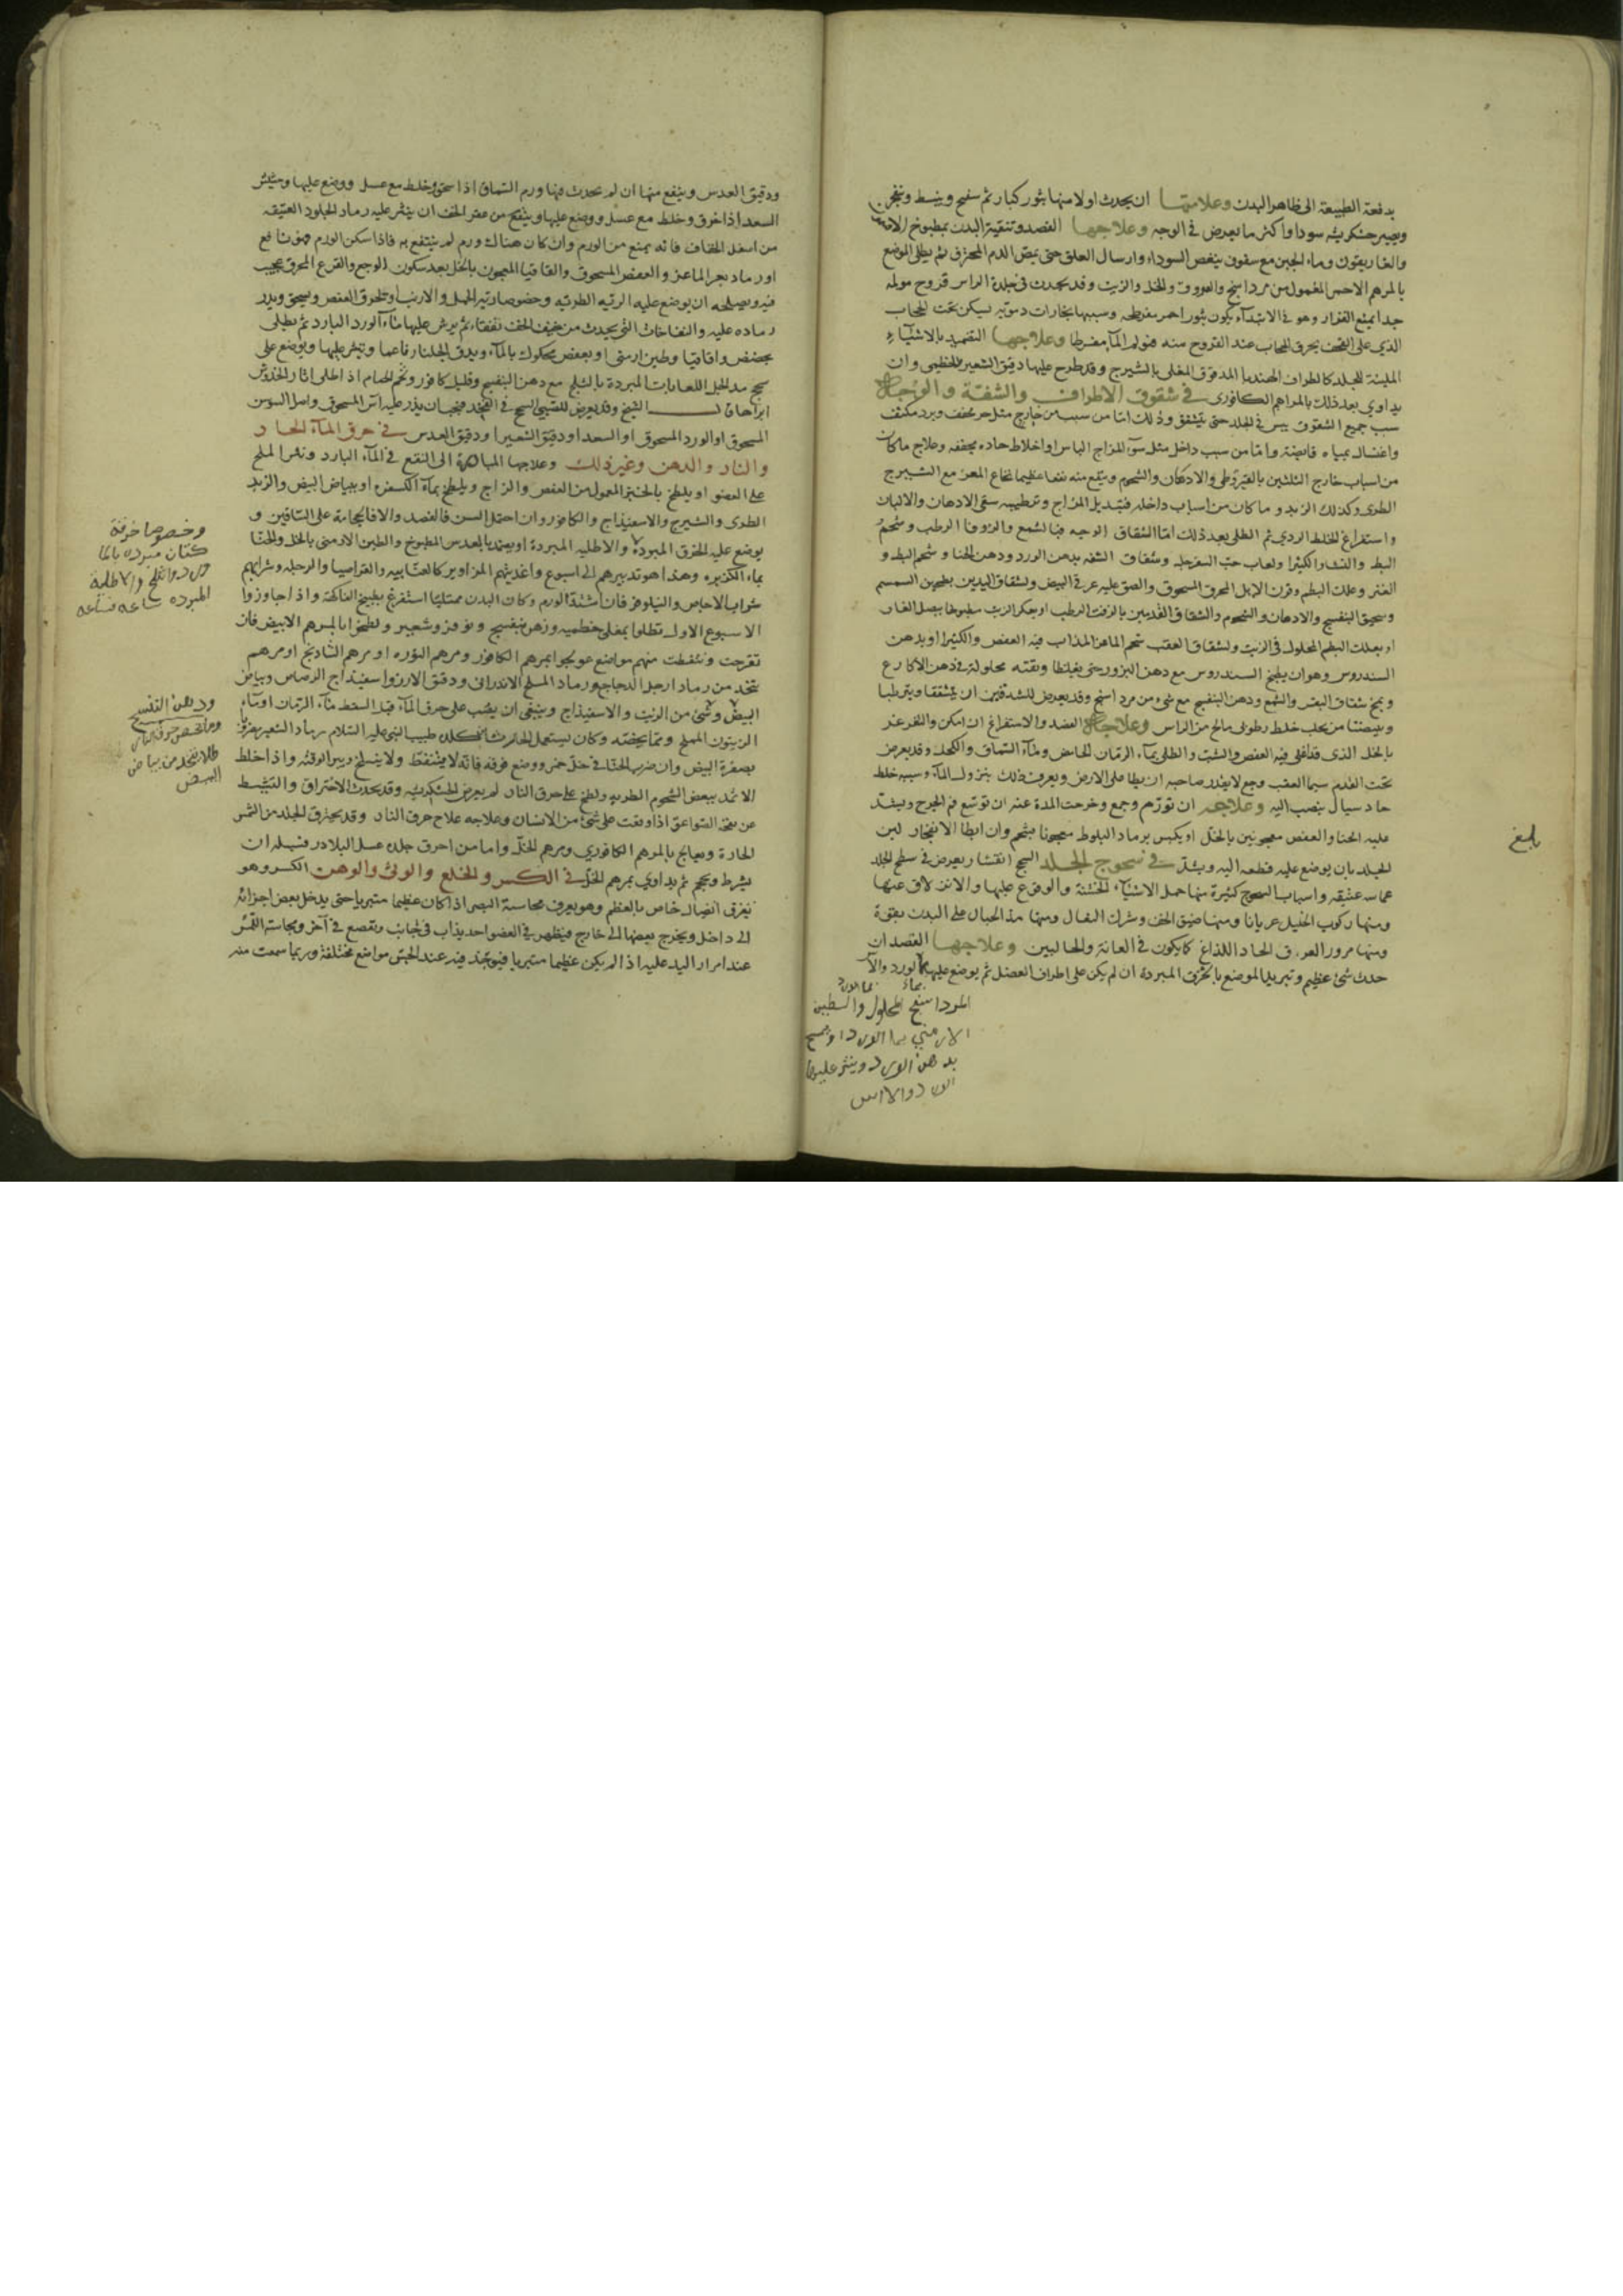 بدفعة الطبيعة الى ظاهر البدن وعلامتها ان يحدث اولا منها بثور كبار ثم تنفتح وينبسط وينفجر
ويصير خشكريشه سودا واكثر ما يعرض في الوجه وعلاجها الفصد وتنقية البدن بمطبوخ الافتيمون
والغاريقون وماء الجبن مع سفوف ينفض السوداء وارسال العلق حتى يمص الدم المحترق ثم يطلى الموضع
بالمرهم الاحمر المعمول من مرداسنج والعروق والخل والزيت وقد يحدث في جلدة الراس قروح مولمه
جدا يمنع القرار وهو في الابتداء يكون بثورا حمر مفرطحه وسببها بخارات دمويه ليسكن تحت الحجاب
الذي على القحف يحرق الحجاب عند القروح منه فتولم الما مفرطا وعلاجها التضميد بالاشياء
الملينة للجلد كاطراف الهندبا المدقوق المغلى بالشيرج وقد طرح عليها دقيق الشعير والخطمى وان
يداوي بعد ذلك بالمراهم الكافورى في شقوق الاطراف والشفة والوجه
سبب جميع الشقوق يبس في الجلد حتى يتشقق وذلك اما من سبب من خارج مثل حر مجفف وبرد مكثف
واغتسال بمياه قابضة واما من سبب داخل مثل سوء المزاج اليابس او اخلاط حاده مجففه وعلاج ماكان
من اسباب خارج التلئين بالقيروطى والادهان والشحوم وينفع منه نفعا عظيما نخاع المعز مع الشيرج
الطرى وكذلك الزبد وما كان من اسباب داخله فتبديل المزاج وترطيبه بسقى الادهان والالبان
واستفراغ الخلط الردي ثم الطلى بعد ذلك اما الشقاق الوجه فبالشمع والزوفا الرطب وشحم
البط والنشا والكثيرا ولعاب حب السفرجل وشقاق الشفه بدهن الورد ودهن الحنا وشحم البط و
العنز وعلك البطم وقرن الايل المحرق المسحوق والصق عليه غرقئ البيض ولشقاق اليدين بطحين السمسم
وسحيق البنفسج والادهان والشحوم والشقاق القدمين بالزفت الرطب او بعكر الزيت مطبوخا ببصل الفار
او بعلك البطم المحلول في الزيت ولشقاق العقب شحم الماعز المذاب فيه العفص والكثيرا او بدهن
السندروس وهو ان يطبخ السندروس مع دهن البزور حتى يغلظا وبقته محلولة في دهن الاكارع
وبمخ ساق البقر والشمع ودهن البنفسج مع شى من مرداسنج وقد يعرض للشدقين ان يتشققا ويترطبا
وبيضتا من تحلب خلط رطوبى مالح من الراس وعلاجه الفصد والاستفراغ ان امكن والتغرغر
بالخل الذى قد اغلى فيه العفص والشبت والطلى بماء الرمان الحامض وماء السماق والكحل وقد يعرض
تحت القدم سيما العقب وجع لا يقدر صاحبه ان يطا على الارض ويعرف ذلك بنزول الماء وسببه خلط
حاد سيال ينصب اليه وعلاجه ان تورم وجمع وخرجت المدة عنه ان توسع فم الجرح ويشد
عليه الحنا والعفص معجونين بالخل او يكبس برماد البلوط معجونا بشحم وان ابطا الانفجار لين
الجلد بان يوضع عليه قطعه اليه ويشد في سحوج الجلد السحج انقشار يعرض في سطح الجلد
مماسه عنيفه واسباب السحوج كثيرة منها حمل الاشياء الخشنة والوقوع عليها والانزلاق عنها
ومنها ركوب الخيل عريانا ومنها ضيق الخف وشراك النعال ومنها مد الحبال على البدن بقوة
ومنها مرور العرق الحاد اللذاع كما يكون في العانة والحالبين وعلاجها الفصد ان
حدث شئ عظيم وتبريد الموضع بالخرق المبردة ان لم يكن على اطراف العضل ثم يوضع عليها ماء الورد والاس
بماء الورد
المرداسنج المحلول والطين
الارمني بما الورد او يمسح
بدهن الورد وينثر عليها
الورد والاس
بلغ
ودقيق العدس وينفع منها ان لم يحدث فيها ورم السماق اذا سحق وخلط مع عسل ووضع عليها وحشيش
السعد اذا حرق وخلط مع عسل ووضع عليها وينفع من عقر الخف ان ينثر عليه رماد الجلود العتيقه
من اسفل الخفاف فانه يمنع من الورم وان كان هناك ورم لم ينتفع به فاذا سكن الورم فهو نافع
او رماد بعر الماعز والعفص المسحوق والقاقيا المعجون بالخل بعد سكون الوجع والقرع المحرق عجيب
فيه ويصلحه ان يوضع عليه الريه الطريه وخصوصا ريه الحمل والارنب او يحرق العفص ويسحق ويذر
رماده عليه والنفاخات التى يحدث من ضيق الخف تفقاء ثم يرش عليها ماء الورد البارد ثم يطلى
بحضض واقاقيا وطين ارمنى او بعفص محكوك بالماء ويدق الجلنار ناعما وينثر عليها ويوضع على
سحج مد الحبل اللعابات المبردة بالثلج مع دهن البنفسج وقليل كافور
ابراها قال الشيخ وقد يعرض للصبى السحج في الفخذ فيجب ان يذر عليه اس المسحوق واصل السوسن
المسحوق او الورد المسحوق او السعد او دقيق الشعير او دقيق العدس في حرق الماء الحار
والنار والدهن وغير ذلك وعلاجها المبادرة الى النقع في الماء البارد ونثر الملح
على العضو او يلطخ بالحبر المعمول من العفص والزاج ويلطخ بماء الكسفره او ببياض البيض والزبد
الطرى والشيرج والاسفيذاج والكافور وان احتمل السن فالفصد والا فالحجامة على الساقين و
يوضع عليه الخرق المبردة والاطليه المبردة او يضمد بالعدس المطبوخ والطين الارمنى بالخل والحنا
بماء الكزبره وهذا هو تدبيرهم الى اسبوع واغذيتهم المزاوير كالعنابيه والقراصيا والرجله وشرابهم
شراب الاجاص والنيلوفر فان اشتد الورم وكان البدن ممتلئا استفرغ بطبيخ الفاكهة واذا جاوزوا
الاسبوع الاول نطلوا بمغلى خطميه وزهر بنفسج ونوفر وشعير ولطخوا بالمرهم الابيض فان
تقرحت وتنفطت منهم مواضع عولجوا بمرهم الكافور ومرهم النوره او مرهم الشاذنج او مرهم
يتخذ من رماد ارجل الدجاج ورماد الملح الاندرانى ودقيق الارز واسفيذاج الرصاص وبياض
البيض وشئ من الزيت والاسفيذاج وينبغى ان يصب على حرق الماء قبل التنفط ماء الرمان او ماء
الزيتون المملح
بصفرة البيض وان ضرب الحنا في خل خمر ووضع فوقه فانه لا يتنفط ولا ينسلخ ويبرا لوقته واذا خلط
الاثمد ببعض الشحوم الطريه ولطخ على حرق النار لم يعرض الخشكريشه وقد يحدث الاحتراق والتشيط
عن الصواعق اذا وقعت على شئ من الانسان وعلاجه علاج حرق النار وقد يحترق الجلد من الشمس
الحارة ويعالج بالمرهم الكافوري ومرهم الخل واما من احرق جلده عسل البلادر فسبيله ان
يشرط ويحجم ثم يداوي بمرهم الخل في الكسر والخلع والوثى والوهن الكسر وهو
تفرق اتصال خاص بالعظم وهو يعرف بحاسة البصر اذا كان عظيما متبريا حتى يدخل بعض اجزائه
الى داخل ويخرج بعضها الى خارج فيظهر في العضو احديذاب في جانب وتقصع في آخر وبحاسة اللمس
عند امرار اليد عليه اذا لم يكن عظيما متبريا فيوجد فيه عند الجس مواضع مختلفة وربما سمعت منه
وخصوصا خرقة
كتان مبرده بالما
ورد والثلج والاطلية
المبرده ساعه فساعه
ودهن البنفسج
ومما يخص حرق النار
طلا يتخذ من بياض
البيض